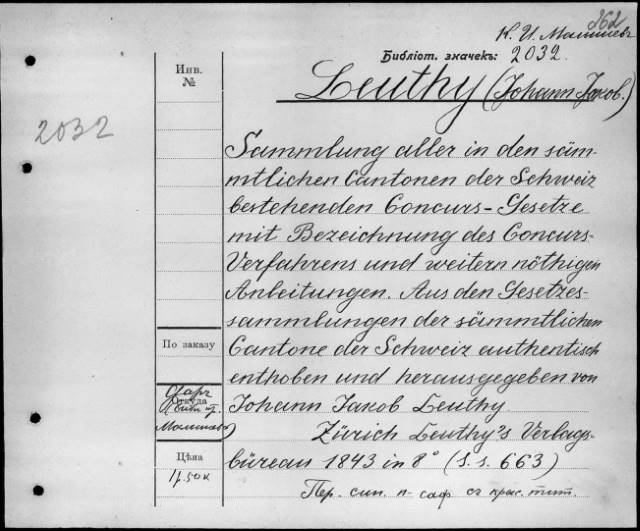 262
К. И. Малышевъ
Библіот. значекъ: 2032.
Инв.
№
Leuthy (Johann Jakob.)
2032
Sammlung aller in den säm-
mtlichen Cantonen der Schweiz
bestehenden Concurs-Gesetze
mit Bezeichnung des Concurs-
Verfahrens und weitern nöthigen
Anleitungen. Aus den Gesetzes-
sammlungen der sämmtlichen
По заказу
Cantone der Schweiz authentisch
enthoben und herausgegeben von
Откуда
Малышева)
Johann Jakob Leuthy.
Zürich Leuthy's Verlags-
Цѣна
büreau 1843 in 8° (S. s. 663)
1 р. 50 к
Пер. син. п-саф съ крас. тит.